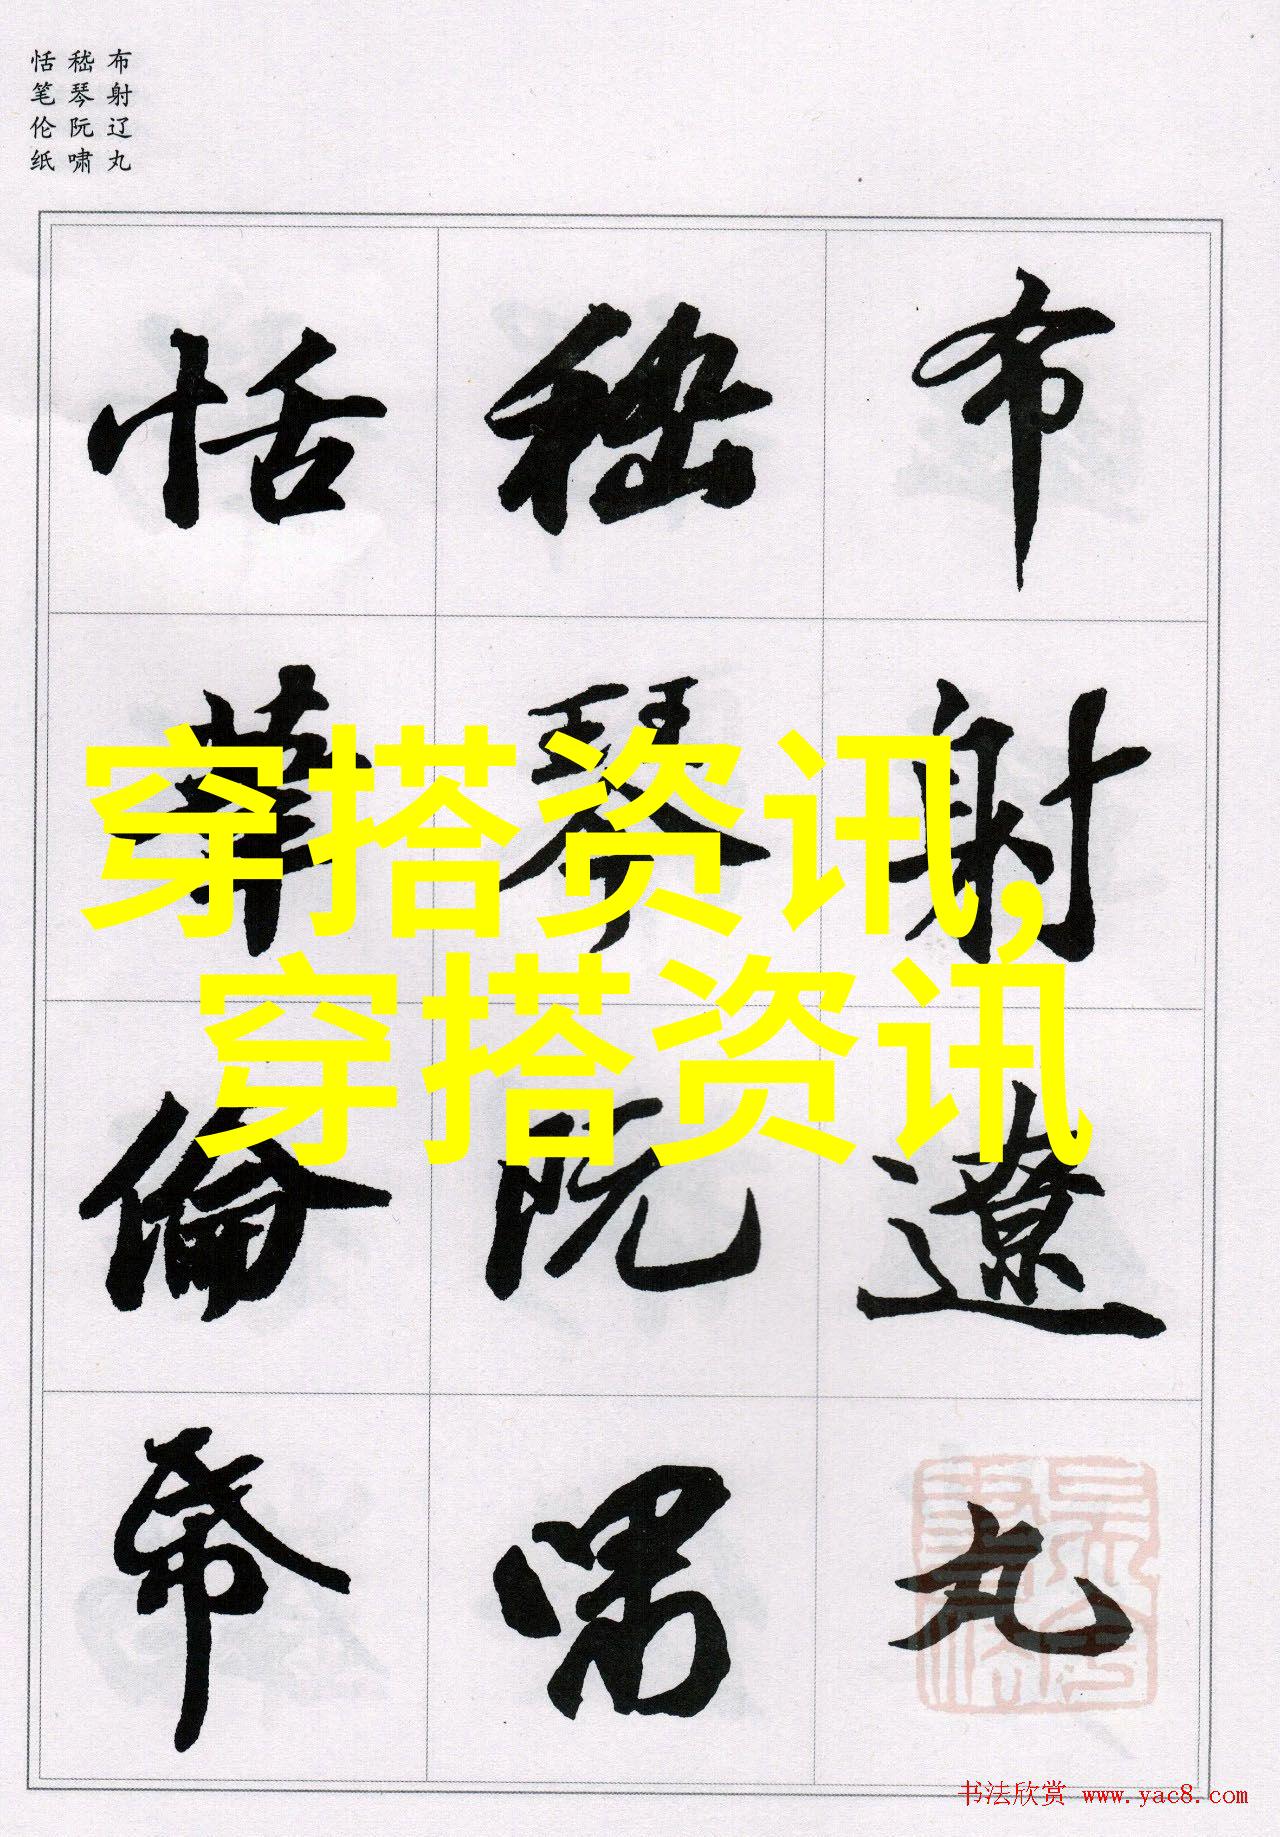 布射辽丸
嵇琴阮啸
恬笔伦纸
布射遼丸
嵇琴阮嘯
恬筆倫帋
穿搭资讯,
穿搭资讯
书法欣赏 www.yac8.com